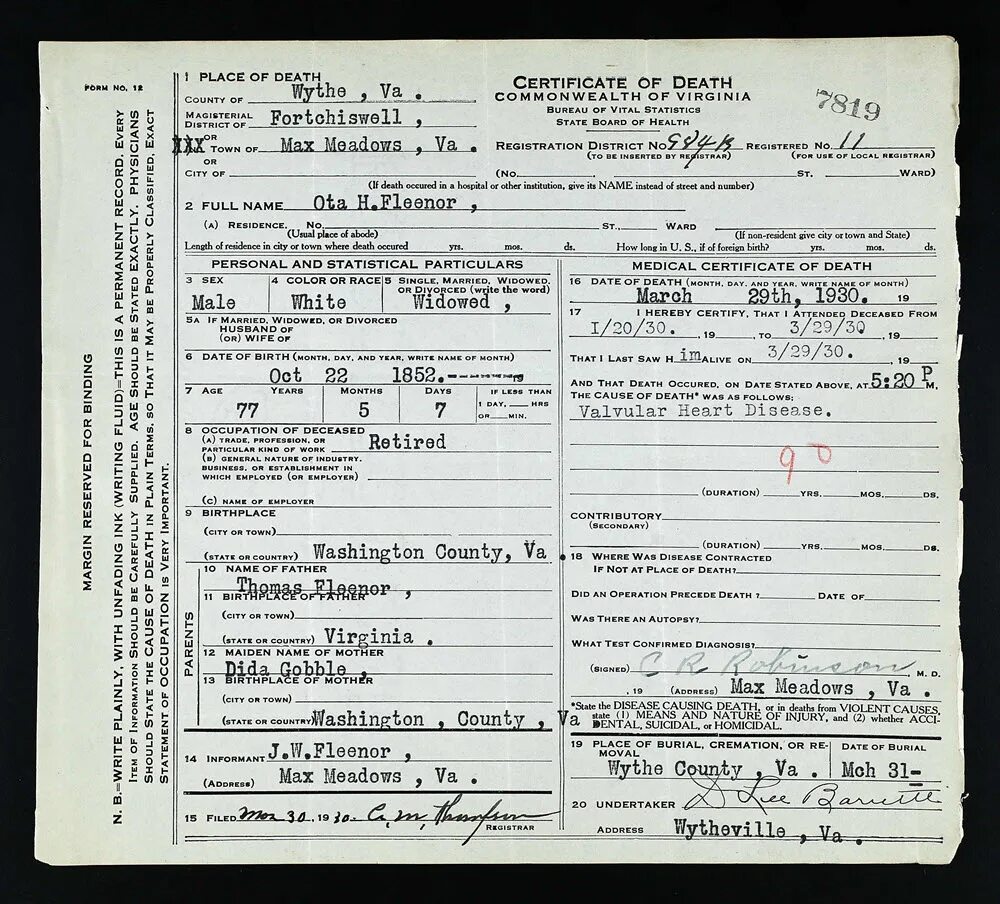 FORM NO. 12
MARGIN RESERVED FOR BINDING
N. B.—WRITE PLAINLY, WITH UNFADING INK (WRITING FLUID)—THIS IS A PERMANENT RECORD. EVERY
ITEM OF INFORMATION SHOULD BE CAREFULLY SUPPLIED. AGE SHOULD BE STATED EXACTLY. PHYSICIANS
SHOULD STATE THE CAUSE OF DEATH IN PLAIN TERMS, SO THAT IT MAY BE PROPERLY CLASSIFIED. EXACT
STATEMENT OF OCCUPATION IS VERY IMPORTANT.
1 PLACE OF DEATH
COUNTY OF Wythe , Va .
MAGISTERIAL
DISTRICT OF Fortchiswell ,
XXX OR
TOWN OF Max Meadows , Va .
OR
CITY OF
CERTIFICATE OF DEATH
COMMONWEALTH OF VIRGINIA
BUREAU OF VITAL STATISTICS
STATE BOARD OF HEALTH
7819
REGISTRATION DISTRICT NO. 984B REGISTERED NO. 11
(TO BE INSERTED BY REGISTRAR) (FOR USE OF LOCAL REGISTRAR)
(NO. ST. WARD)
(If death occured in a hospital or other institution, give its NAME instead of street and number)
2 FULL NAME Ota H.Fleenor ,
(A) RESIDENCE. No. ST., WARD
(Usual place of abode) (If non-resident give city or town and State)
Length of residence in city or town where death occured yrs. mos. ds. How long in U. S., if of foreign birth? yrs. mos. ds.
PERSONAL AND STATISTICAL PARTICULARS
3 SEX Male
4 COLOR OR RACE White
5 SINGLE, MARRIED, WIDOWED,
OR DIVORCED (write the word)
Widowed ,
5A IF MARRIED, WIDOWED, OR DIVORCED
HUSBAND OF
(OR) WIFE OF
6 DATE OF BIRTH (MONTH, DAY, AND YEAR, WRITE NAME OF MONTH)
Oct 22 1852. 19
7 AGE YEARS MONTHS DAYS IF LESS THAN
77 5 7 1 DAY, HRS
OR MIN.
8 OCCUPATION OF DECEASED
(A) TRADE, PROFESSION, OR
PARTICULAR KIND OF WORK Retired
(B) GENERAL NATURE OF INDUSTRY,
BUSINESS, OR ESTABLISHMENT IN
WHICH EMPLOYED (OR EMPLOYER)
(C) NAME OF EMPLOYER
9 BIRTHPLACE
(CITY OR TOWN)
(STATE OR COUNTRY) Washington County, Va .
PARENTS
10 NAME OF FATHER
Thomas Fleenor ,
11 BIRTHPLACE OF FATHER
(CITY OR TOWN)
(STATE OR COUNTRY) Virginia .
12 MAIDEN NAME OF MOTHER
Dida Gobble ,
13 BIRTHPLACE OF MOTHER
(CITY OR TOWN)
(STATE OR COUNTRY) Washington , County , Va
14 INFORMANT J.W.Fleenor ,
(ADDRESS) Max Meadows , Va .
15 FILED Mar 30, 1930. C. M. Thompson
REGISTRAR
MEDICAL CERTIFICATE OF DEATH
16 DATE OF DEATH (MONTH, DAY, AND YEAR, WRITE NAME OF MONTH)
March 29th, 1930. 19
17 I HEREBY CERTIFY, THAT I ATTENDED DECEASED FROM
1/20/30. , 19 , TO 3/29/30 , 19
THAT I LAST SAW H im ALIVE ON 3/29/30. , 19
AND THAT DEATH OCCURED, ON DATE STATED ABOVE, AT 5:20 P M.
THE CAUSE OF DEATH* WAS AS FOLLOWS:
Valvular Heart Disease.
90
(DURATION) YRS. MOS. DS.
CONTRIBUTORY
(SECONDARY)
(DURATION) YRS. MOS. DS.
18 WHERE WAS DISEASE CONTRACTED
IF NOT AT PLACE OF DEATH?
DID AN OPERATION PRECEDE DEATH? DATE OF
WAS THERE AN AUTOPSY?
WHAT TEST CONFIRMED DIAGNOSIS?
(SIGNED) C R Robinson , M. D.
, 19 (ADDRESS) Max Meadows , Va .
*State the DISEASE CAUSING DEATH, or in deaths from VIOLENT CAUSES,
state (1) MEANS AND NATURE OF INJURY, and (2) whether ACCI-
DENTAL, SUICIDAL, or HOMICIDAL.
19 PLACE OF BURIAL, CREMATION, OR RE-
MOVAL
Wythe County , Va .
DATE OF BURIAL
Mch 31-
20 UNDERTAKER D Lee Barnette
ADDRESS Wytheville , Va .